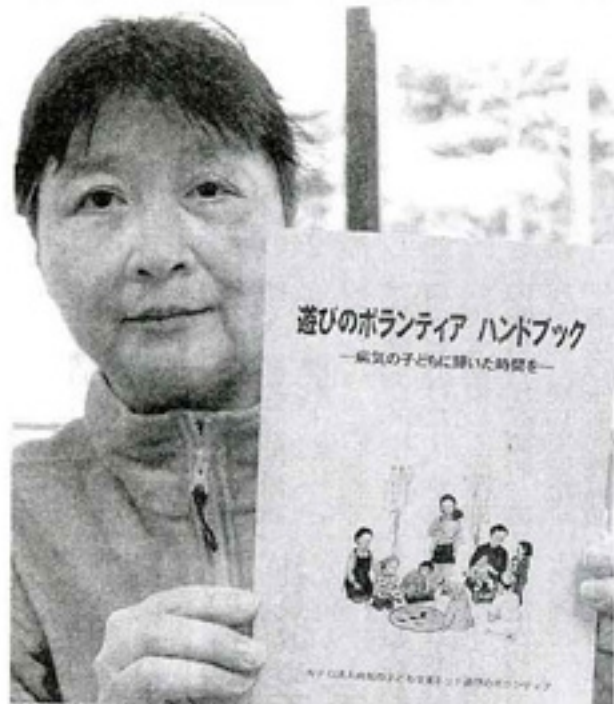 遊びのボランティア ハンドブック
―病気の子どもに輝いた時間を―
病気の子ども支援ネット 遊びのボランティア